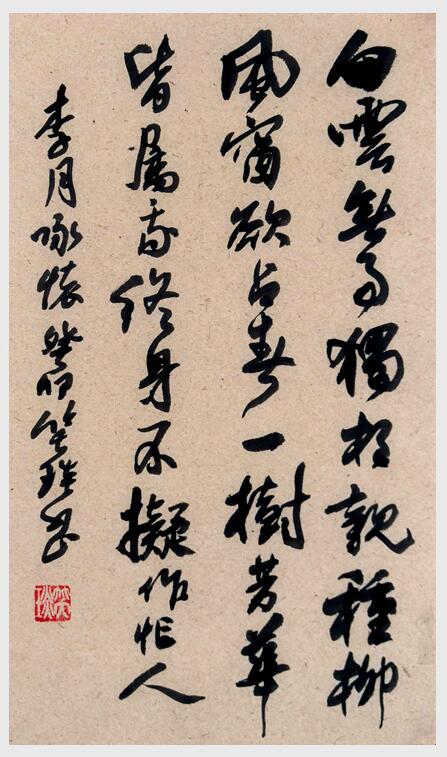 白雲無事獨相親種柳
風窗欲占春一樹芳華
皆屬我終身不擬作忙人
李月咏懷癸卯琳書